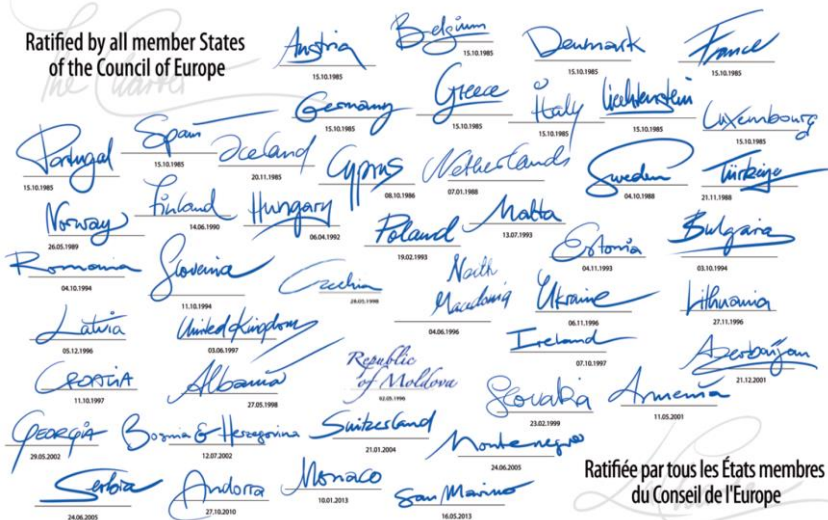 Ratified by all member States
of the Council of Europe
The Charter
Austria
15.10.1985
Belgium
15.10.1985
Denmark
15.10.1985
France
15.10.1985
Germany
15.10.1985
Greece
15.10.1985
Italy
15.10.1985
Liechtenstein
15.10.1985
Luxembourg
15.10.1985
Portugal
15.10.1985
Spain
15.10.1985
Iceland
20.11.1985
Cyprus
08.10.1986
Netherlands
07.01.1988
Sweden
04.10.1988
Türkiye
21.11.1988
Norway
26.05.1989
Finland
14.06.1990
Hungary
06.04.1992
Poland
19.02.1993
Malta
13.07.1993
Estonia
04.11.1993
Bulgaria
03.10.1994
Romania
04.10.1994
Slovenia
11.10.1994
Czechia
28.05.1998
North
Macedonia
04.06.1996
Ukraine
06.11.1996
Lithuania
27.11.1996
Latvia
05.12.1996
United Kingdom
03.06.1997
Ireland
07.10.1997
Azerbaijan
21.12.2001
Croatia
11.10.1997
Albania
27.05.1998
Republic
of Moldova
02.05.1996
Slovakia
23.02.1999
Armenia
11.05.2001
Georgia
29.05.2002
Bosnia & Herzegovina
12.07.2002
Switzerland
21.01.2004
Montenegro
24.06.2005
Serbia
24.06.2005
Andorra
27.10.2010
Monaco
10.01.2013
San Marino
16.05.2013
Ratifiée par tous les États membres
du Conseil de l'Europe